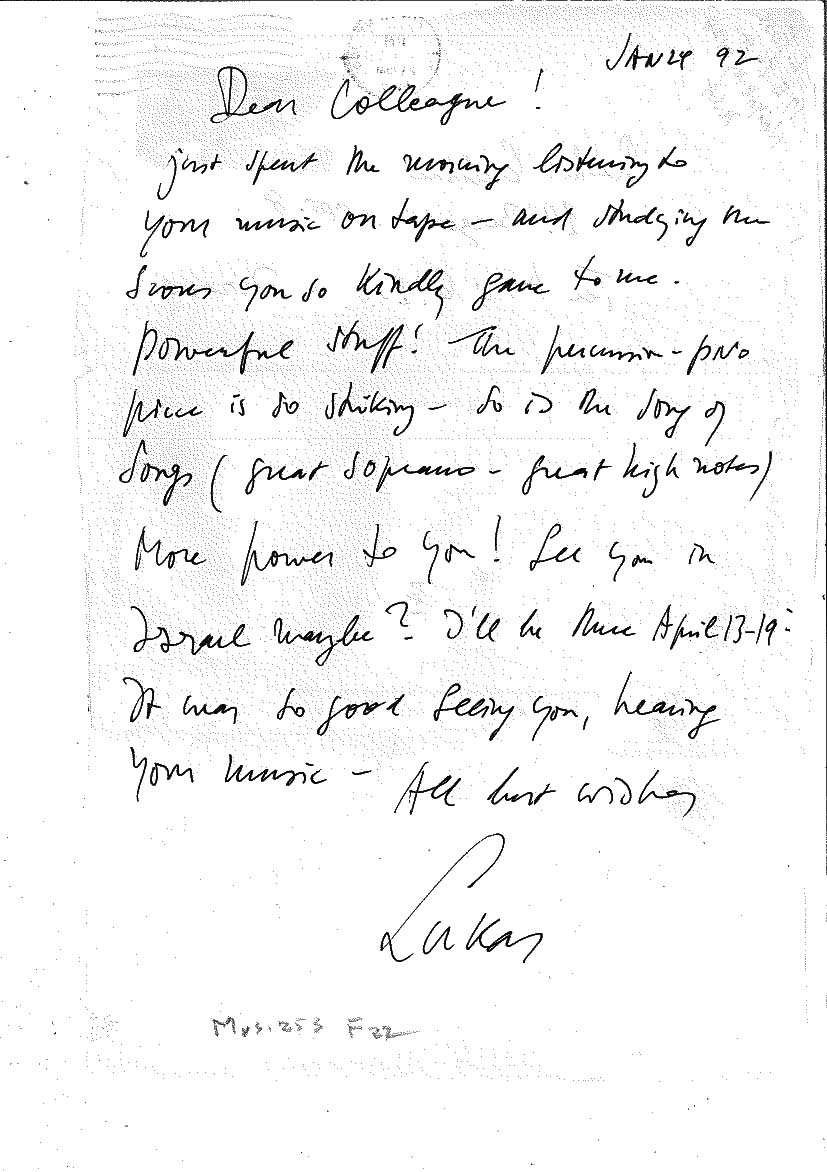 JAN 24 92
Dear Colleague!
just spent the morning listening to
your music on tape – and studying the
scores you so kindly gave to me.
Powerful stuff! The percussion-piano
piece is so striking – so is the Song of
Songs (great soprano – great high notes)
More power to you! See you in
Israel maybe? I'll be there April 13-19.
It was so good seeing you, hearing
your music – All best wishes
Lukas
Mus. 253 F22